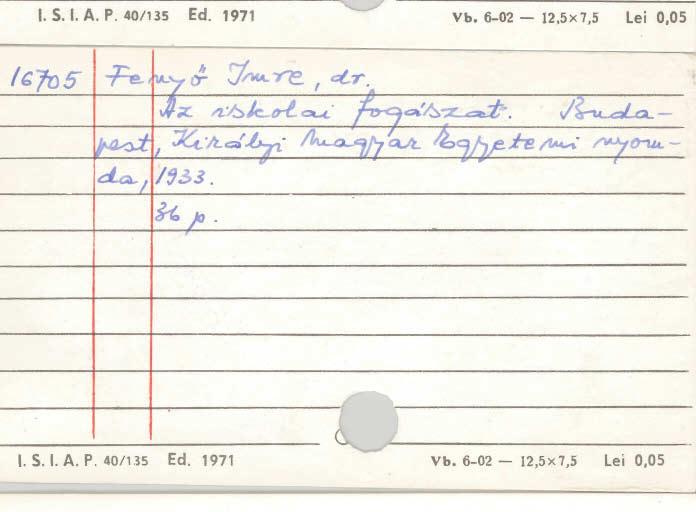 I. S. I. A. P. 40/135 Ed. 1971 Vb. 6-02 — 12,5×7,5 Lei 0,05
16705 Fenyő Imre, dr.
Az iskolai fogászat. Buda-
pest, Királyi Magyar Egyetemi nyom-
da, 1933.
36 p.
I. S. I. A. P. 40/135 Ed. 1971 Vb. 6-02 — 12,5×7,5 Lei 0,05